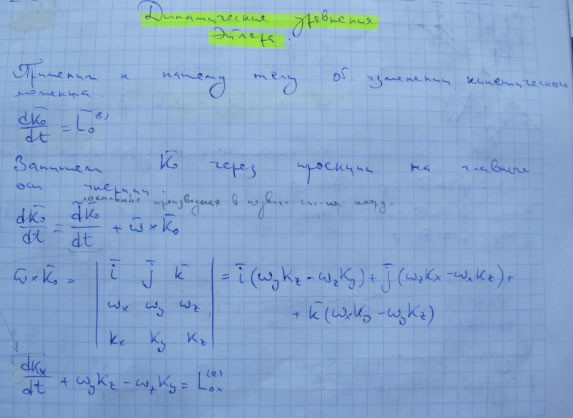 Динамические уравнения
Эйлера.
Применим к нашему телу об изменении кинетического
момента.
dK̄₀/dt = L̄₀⁽ᵉ⁾
Запишем K̄₀ через проекции на главные
оси инерции.
производная в подвиж. сис-ме коорд.
dK̄₀/dt = d̃K̄₀/dt + ω̄ × K̄₀
ω̄ × K̄₀ = | ī j̄ k̄ | = ī (ωyKz - ωzKy) + j̄ (ωzKx - ωxKz) +
ωx ωy ωz + k̄ (ωxKy - ωyKz)
Kx Ky Kz
dKx/dt + ωyKz - ωzKy = L₀ₓ⁽ᵉ⁾